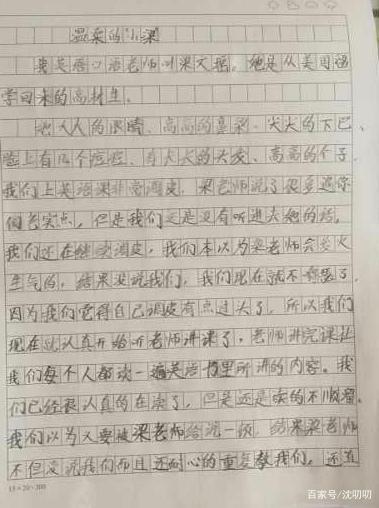 温柔的小梁
我英语口语老师叫梁文瑶。她是从美国留
学回来的高材生。
她大大的眼睛、高高的鼻梁、尖尖的下巴、
脸上有几个痘痘、有长长的头发、高高的个子。
我们上英语课非常调皮，梁老师说了很多遍你
们老实点，但是我们还是没有听进去她的话。
我们还在继续调皮，我们本以为梁老师会发火
生气的，结果没说我们，我们现在就不调皮了，
因为我们觉得自己调皮有点过大了，所以我们
现在就认真开始听老师讲课了，老师讲完课让
我们每个人都读一遍英语书里所讲的内容。我
们已经很认真的在读了，但是还是读的不顺溜，
我们以为又要被梁老师给说一顿，结果梁老师
不但没说我们而且还耐心的重复教我们，还在
15×20=300
百家号/沈明明